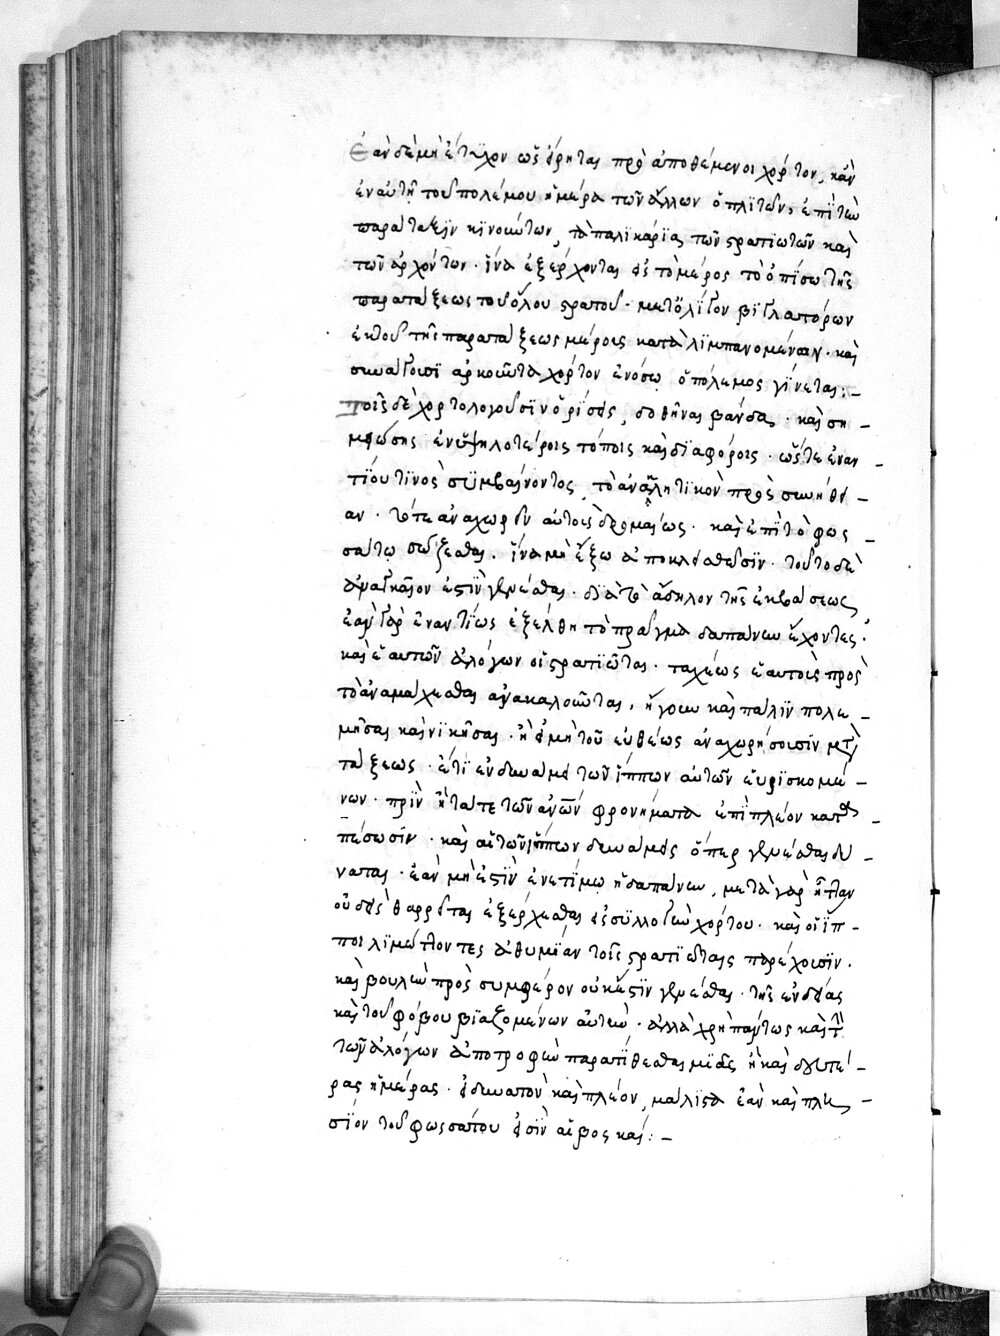 Ἐὰν δὲ μὴ ἔτυχον ὡς εἴρηται προαποθέμενοι χόρτον, κἂν
ἐν αὐτῇ τοῦ πολέμου ἡμέρα τῶν ἄλλων ὁπλιτῶν, ἐπὶ τὴν
παράταξιν κινούντων, τὰ παλικάρια τῶν στρατιωτῶν καὶ
τῶν ἀρχόντων· ἵνα ἐξέρχονται εἰς τὸ μέρος τὸ ὀπίσω τῆς
παρατάξεως τοῦ ὅλου στρατοῦ· μετ' ὀλίγον βιγλατόρων
ἐκ τοῦ τῆς παρατάξεως μέρους καταλιμπανομένων· καὶ
συνάγουσι ἀρκοῦντα χόρτον ἐν ὅσω ὁ πόλεμος γίνεται:–
Τοῖς δὲ χορτολογοῦσιν ὁρίσεις, δοθῆναι βάνδα· καὶ ση–
μειώσης ἐν ὑψηλοτέροις τόποις καὶ διαφόροις· ὥστε ἐναν–
τίου τινὸς συμβαίνοντος, τὸ ἀνακλητικὸν πρὸς συνήθει–
αν· τότε ἀναχωρεῖν αὐτοὺς δρομαίως· καὶ ἐπὶ τὸ φως–
σάτω σώζεσθαι. ἵνα μὴ ἔξω ἀποκλεισθεῖσιν· τοῦτο δὲ
ἀναγκαῖον ἐστὶν γενέσθαι· διὰ τὸ ἄδηλον τῆς ἐκβάσεως
ἐὰν γὰρ ἐναντίως ἐξέλθη τὸ πρᾶγμα δαπάνην ἔχοντες·
καὶ ἑαυτῶν ἀλόγων οἱ στρατιῶται· ταχέως ἑαυτοὺς πρὸς
τὸ ἀναμάχεσθαι ἀνακαλοῦται, ἤγουν καὶ πάλιν πολε–
μῆσαι καὶ νικῆσαι· ἢ εἰ μήτου εὐθέως ἀναχωρήσουσιν μετὰ
τάξεως· ἔτι ἐν δυνάμει τῶν ἵππων αὐτῶν εὑρισκομέ–
νων· πρὶν ἢ τά τε τῶν ἀνῶν φρονήματα ἐπὶ πλέον κατα–
πέσωσιν· καὶ αἱ τῶν ἵππων δυνάμεις ὅπερ γενέσθαι δύ–
ναται· ἐὰν μὴ ἐστὶν ἐν ἑτοίμω ἡ δαπάνη, μετὰ γὰρ ἧτταν
οὐδεὶς θαρρεῖται ἐξέρχεσθαι εἰς συλλογὴν χόρτου· καὶ οἱ ἵπ–
ποι λιμώττοντες ἀθυμίαν τοῖς στρατιώταις παρέχουσιν·
καὶ βουλὴν πρὸς συμφέρον οὐκ ἔστιν γενέσθαι· τῆς ἐνδείας
καὶ τοῦ φόβου βιαζομένων αὐτήν· ἀλλὰ χρὴ πάντως καὶ τὴν
τῶν ἀλόγων ἀποτροφὴν παρατίθεσθαι μιᾶς ἢ καὶ δευτέ–
ρας ἡμέρας· εἰ δυνατὸν καὶ πλέον, μάλιστα ἐὰν καὶ πλη–
σίον τοῦ φωσσάτου εἰσὶν αἱ βοσκαί:–